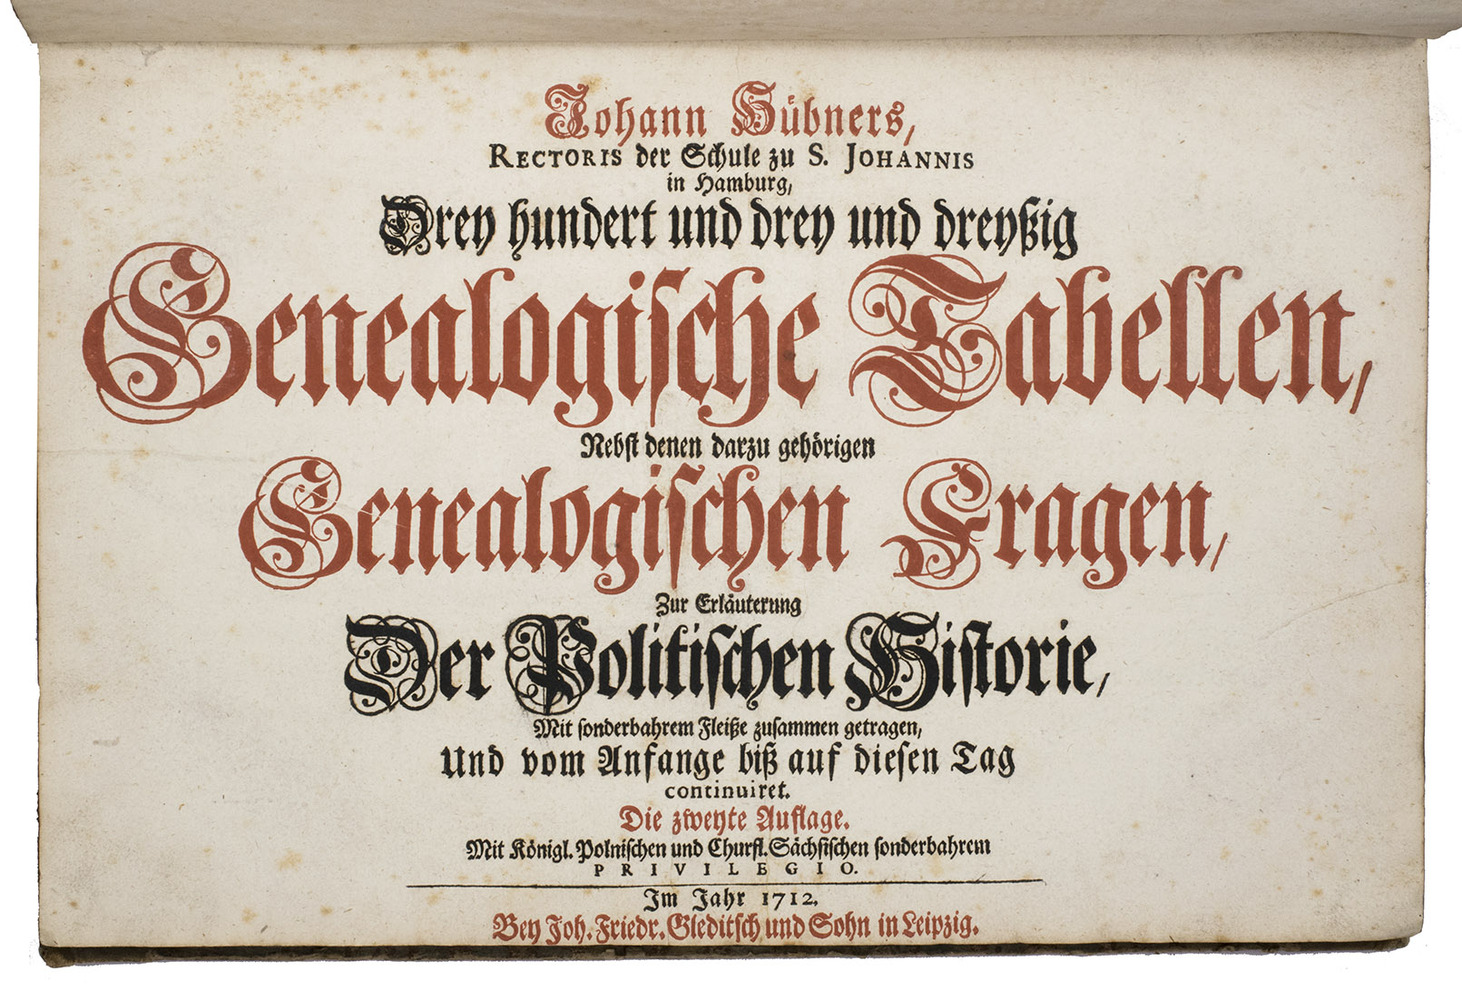 Johann Hübners,
RECTORIS der Schule zu S. JOHANNIS
in Hamburg,
Drey hundert und drey und dreyßig
Genealogische Tabellen,
Nebst denen darzu gehörigen
Genealogischen Fragen,
Zur Erläuterung
Der Politischen Historie,
Mit sonderbahrem Fleiße zusammen getragen,
Und vom Anfange biß auf diesen Tag
continuiret.
Die zweyte Auflage.
Mit Königl. Polnischen und Churfl. Sächsischen sonderbahrem
PRIVILEGIO.
Im Jahr 1712.
Bey Joh. Friedr. Gleditsch und Sohn in Leipzig.